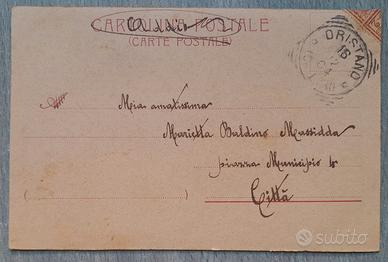 CARTOLINA POSTALE
(CARTE POSTALE)
ORISTANO
Mia amatissima
Marietta Baldino Massidda
piazza Municipio
Città
subito